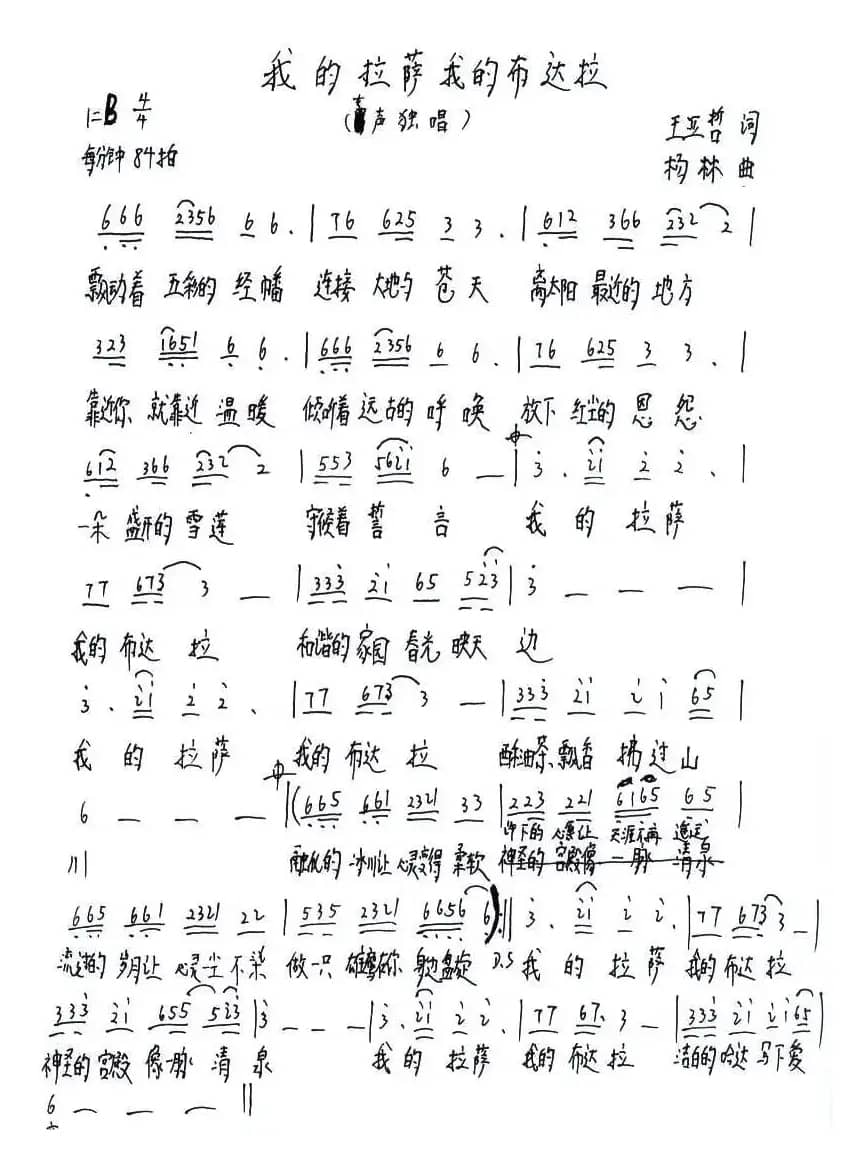 我的拉萨我的布达拉
1=B 4/4
(声独唱)
王亚哲 词
每分钟84拍
杨林 曲
666 2356 6 6. | 76 625 3 3. | 612 366 232 2 |
飘动着 五彩的 经幡 连接 大地与 苍天 离太阳 最近的 地方
323 1651 6 6. | 666 2356 6 6. | 76 625 3 3. |
靠近你 就靠近 温暖 倾听着 远古的 呼唤 放下 红尘的 恩怨
612 366 232 2 | 553 5621 6 — | 3. 21 2 2. |
一朵 盛开的 雪莲 守候着 誓言 我的拉萨
77 673 3 — | 333 21 65 523 | 3 — — — |
我的 布达拉 和谐的 家园 春光 映天边
3. 21 2 2. | 77 673 3 — | 333 21 2 1 65 |
我的拉萨 我的 布达拉 酥油茶 飘香 拂过山
6 — — — | (665 661 2321 33 | 223 221 6165 65 |
印下的 心愿让 天涯不再 遥远
川 融化的 冰川让 心灵变得 柔软 神圣的 宫殿像 一脉 清泉
665 661 2321 22 | 535 2321 6656 6) || 3. 21 2 2. | 77 673 3 — |
流淌的 岁月让 心灵尘不染 做一只 雄鹰在你身边盘旋 D.S 我的拉萨 我的 布达拉
333 21 655 523 | 3 — — — | 3. 21 2 2. | 77 67. 3 — | 333 21 21 65 |
神圣的 宫殿 像一脉 清泉 我的拉萨 我的 布达拉 洁白的 哈达 写下爱
6 — — — ||